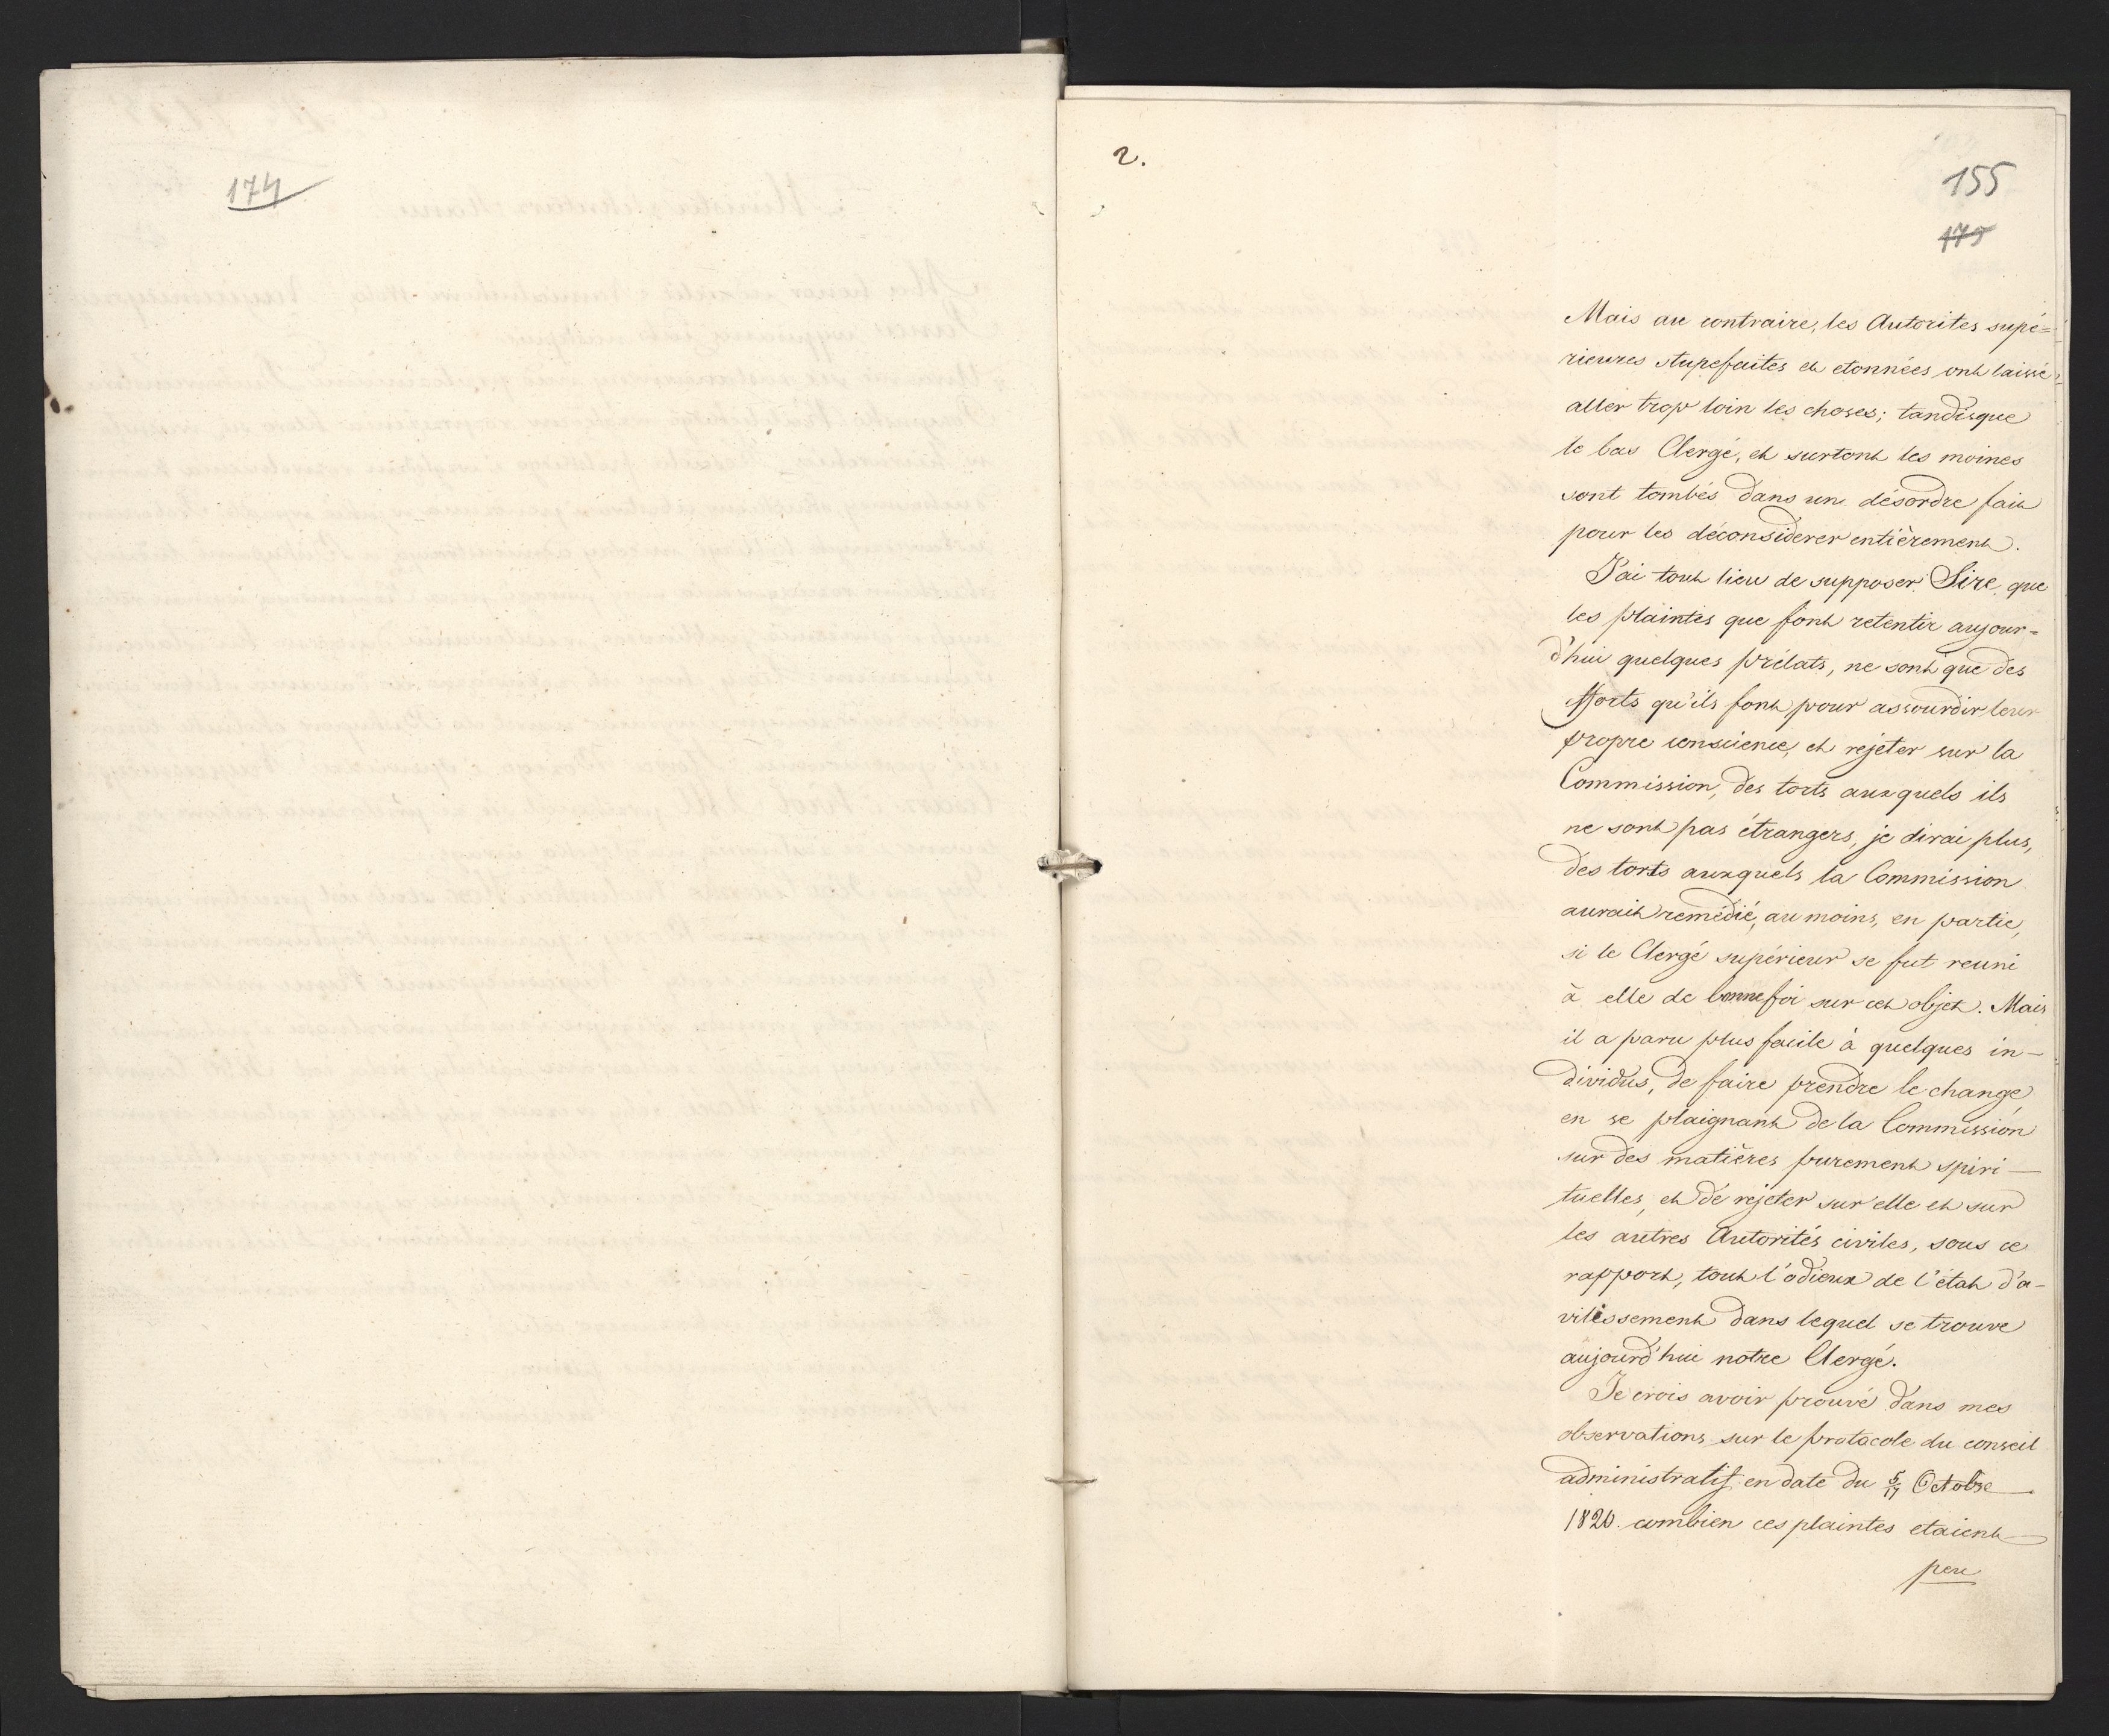 174
2.
155
175
Mais au contraire, les Autorites supé=
rieures stupefaites et etonnées ont laissé
aller trop loin les choses; tandisque
le bas Clergé, et surtout les moines
sont tombés dans un désordre fait
pour les déconsiderer entièrement.
J'ai tout lieu de supposer Sire, que
les plaintes que font retentir aujour=
d'hui quelques prélats, ne sont que des
efforts qu'ils font pour assourdir leur
propre conscience, et rejeter sur la
Commission, des torts auxquels ils
ne sont pas étrangers, je dirai plus,
des torts auxquels la Commission
aurait remédié, au moins, en partie,
si le Clergé supérieur se fut reuni
à elle de bonnefoi sur cet objet. Mais
il a paru plus facile à quelques in-
dividus, de faire prendre le change,
en se plaignant de la Commission
sur des matières purement spiri-
tuelles, et de rejeter sur elle et sur
les autres Autorités civiles, sous ce
rapport, tout l'odieux de l'état d'a-
vilissement dans lequel se trouve
aujourd'hui notre Clergé.
Je crois avoir prouvé dans mes
observations sur le protacole du conseil
administratif en date du 5/17 Octobre
1820. combien ces plaintes etaient
peu